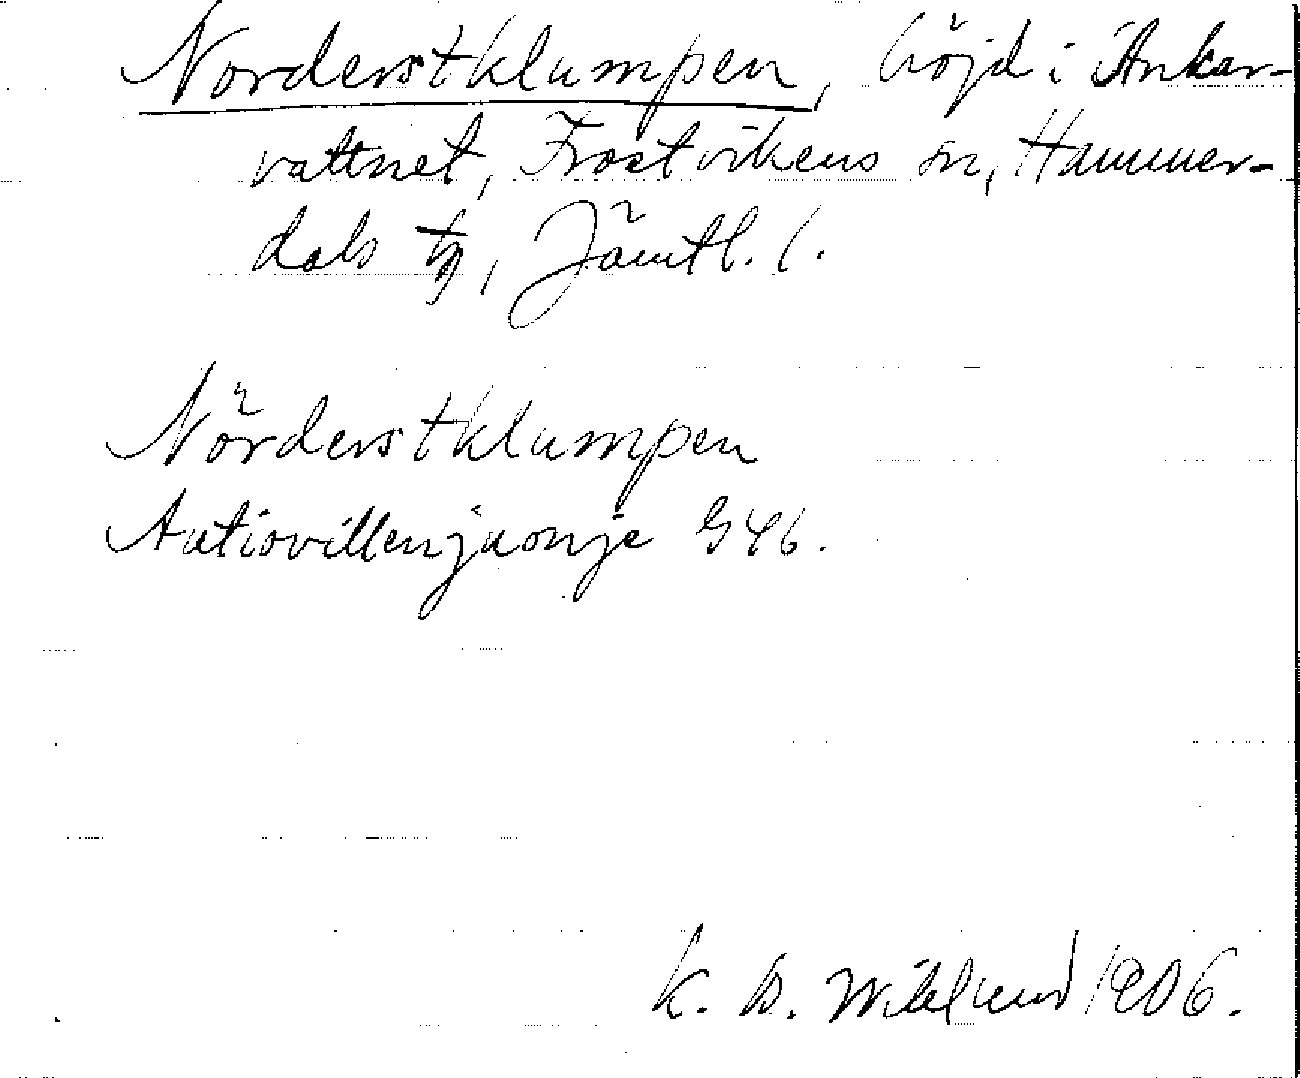 Norderstklumpen, höjd i Ankar-
vattnet, Frostvikens sn, Hammer-
dals tg, Jämtl. l.
Nörderstklumpen
Autiovillenjuonje 946.
K. B. Wiklund 1906.